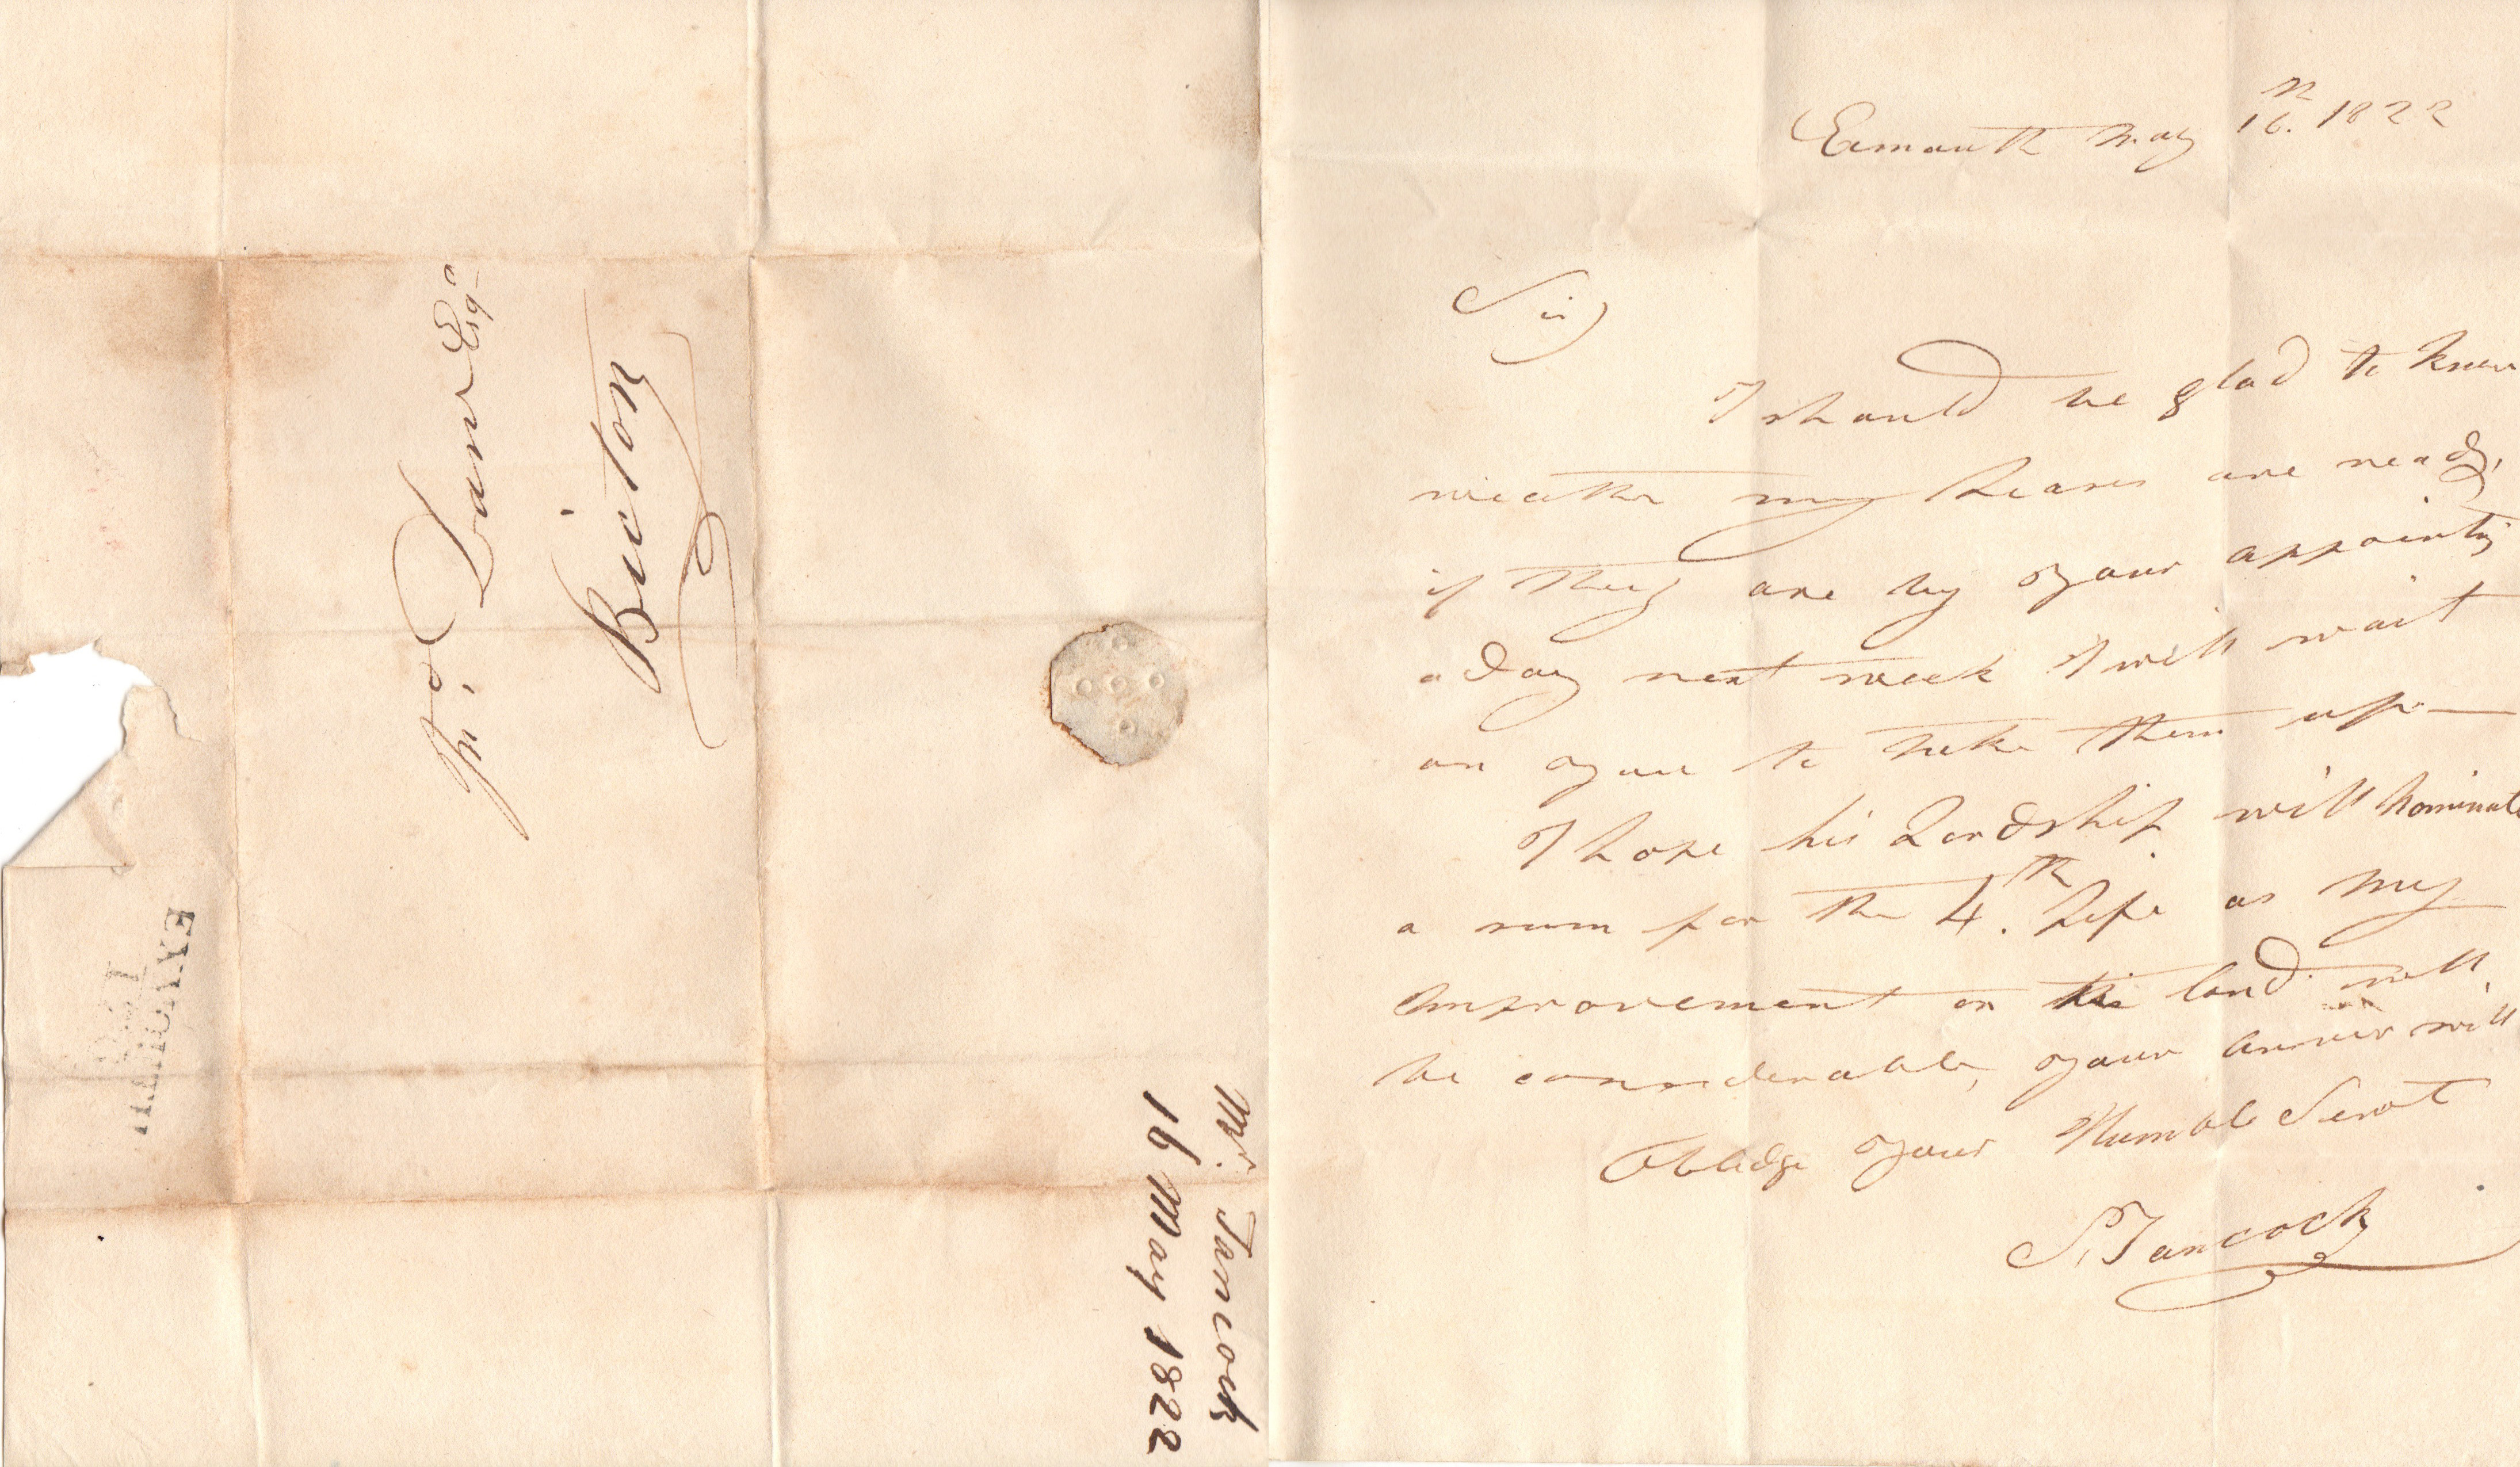 Jno. Daniel Esqr
Bicton
EXMOUTH
Mr. Tancock
16 May 1822
Exmouth May 16th. 1822
Sir
I should be glad to know
weather my leases are ready,
if they are by your appointg
a day next week I will wait
on you to take them up—
I hope his Lordship will Nominate
a sum for the 4th. Life as my
Improvement on the land will
be considerable, your answer will
Obledge your Humble Servt
S. Tancock